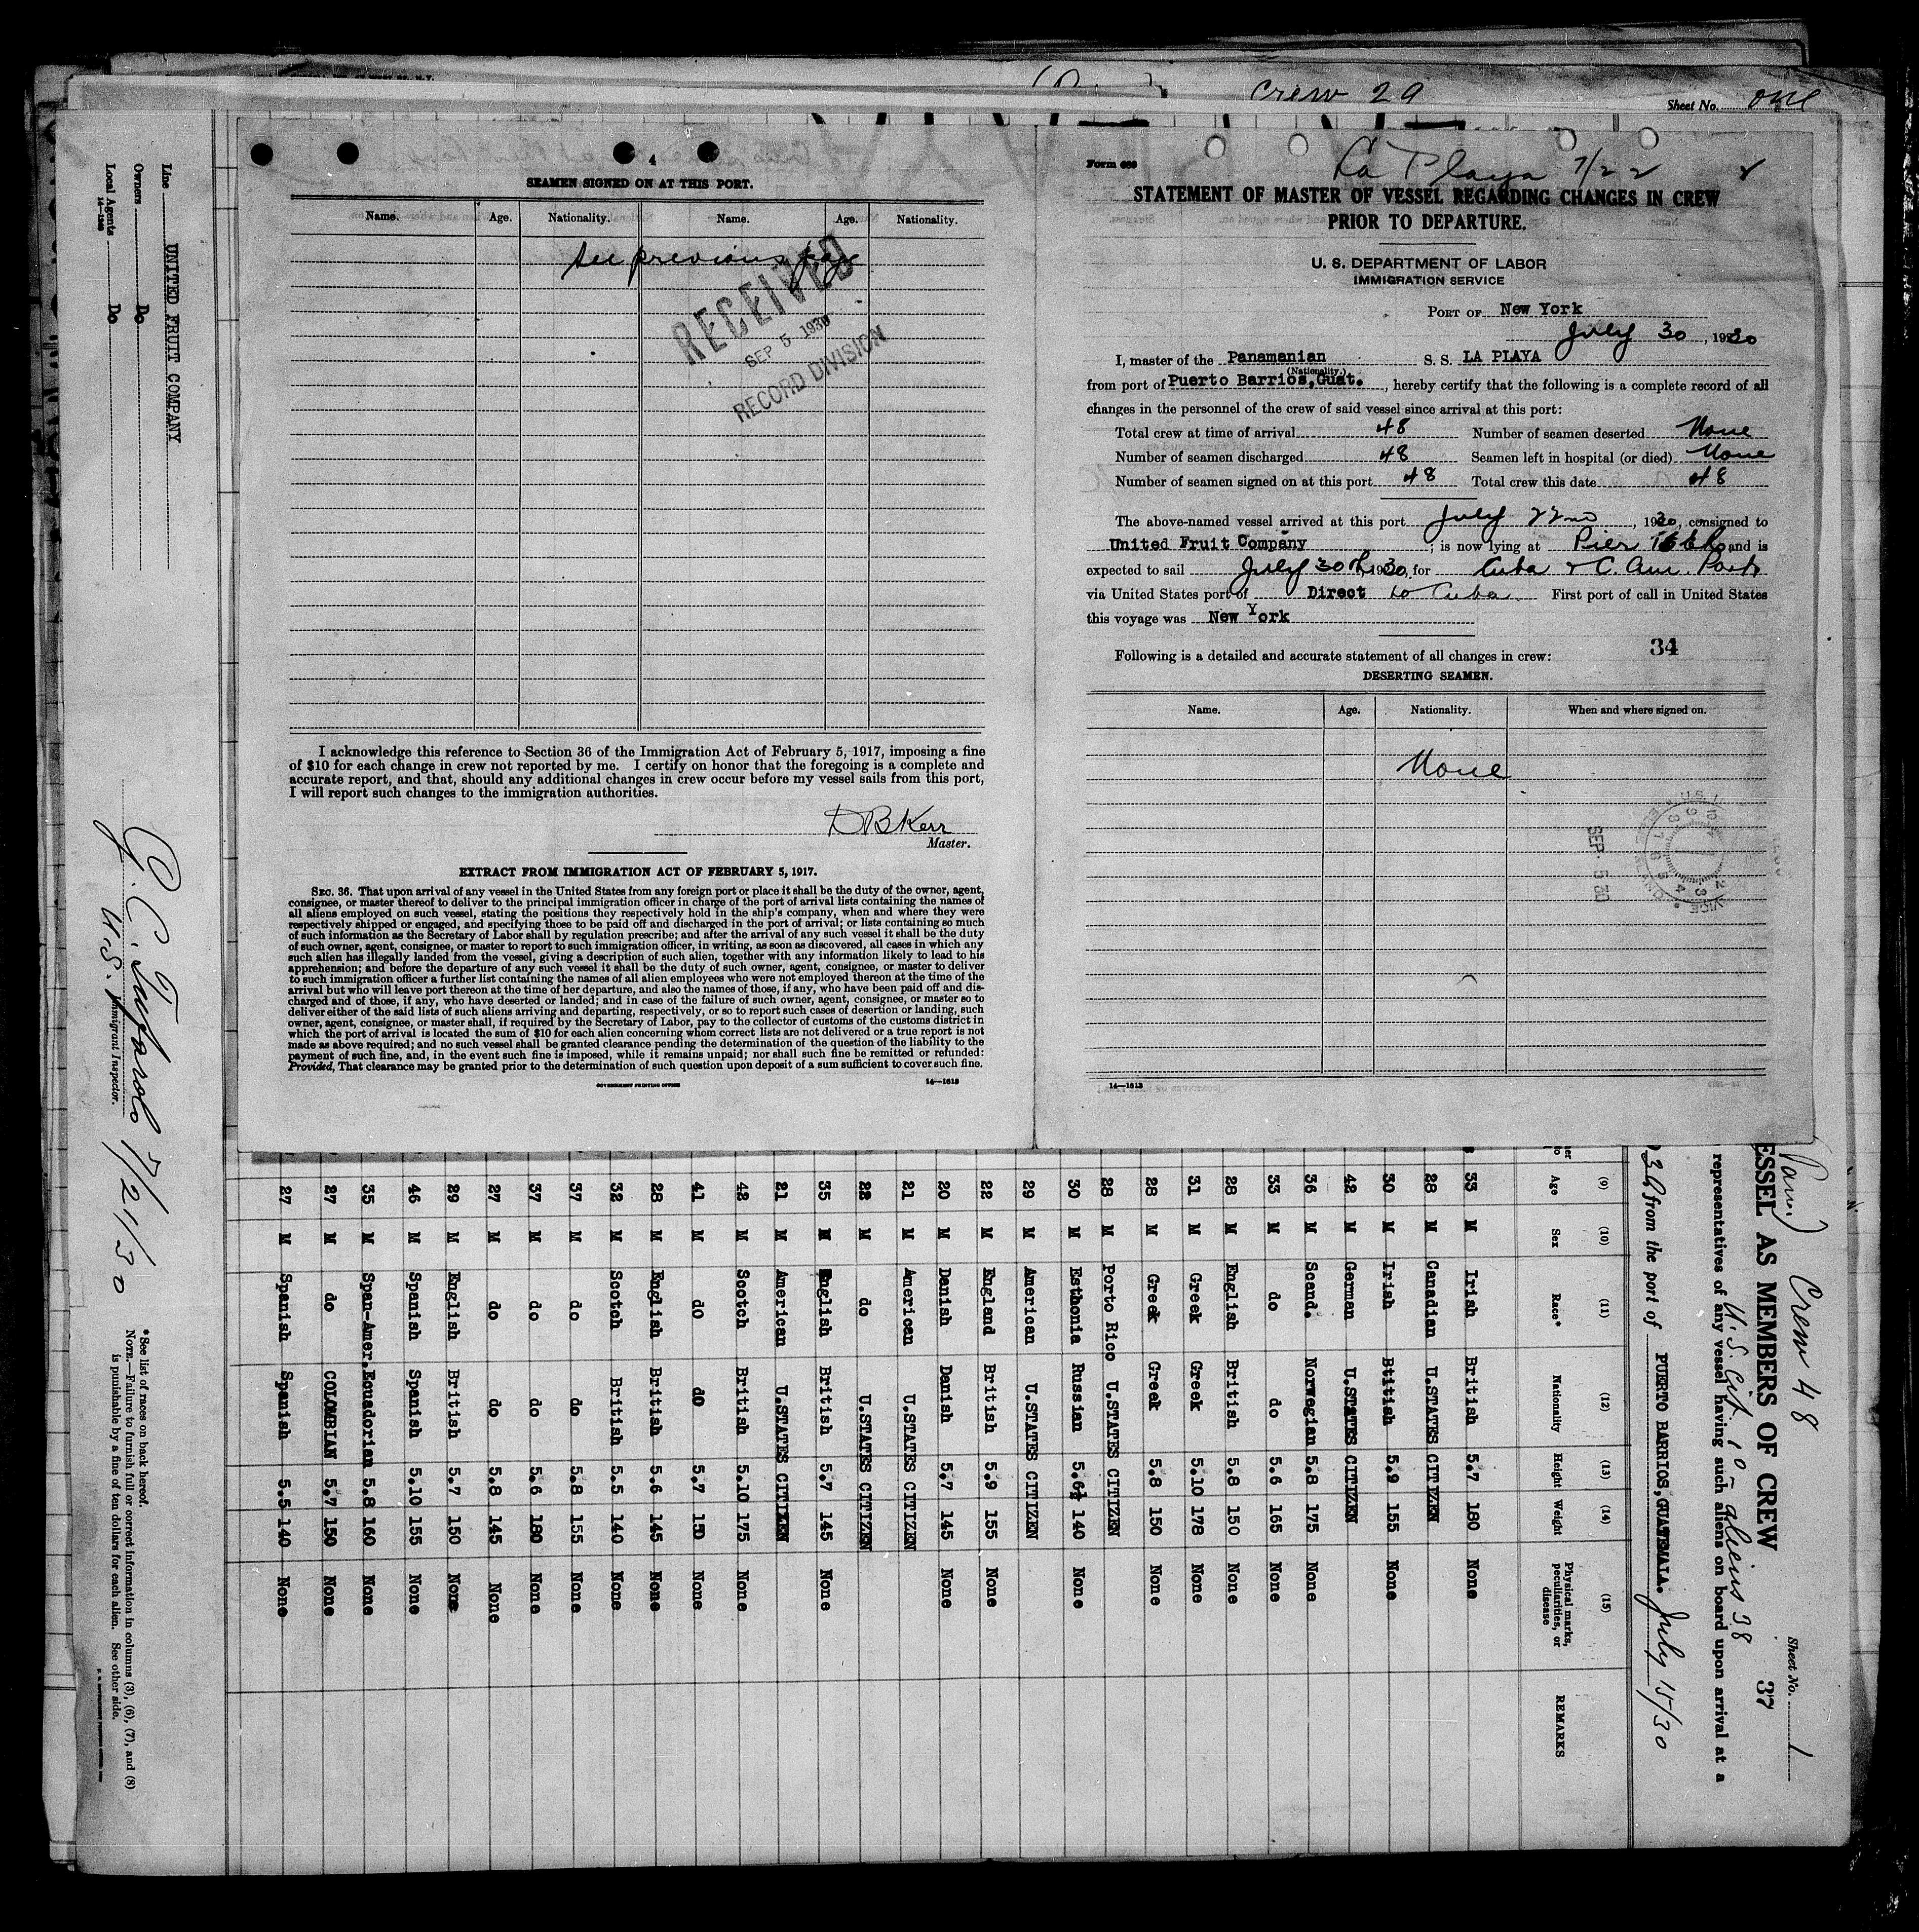 Crew 29
Sheet No. one
4
SEAMEN SIGNED ON AT THIS PORT.
Name. Age. Nationality. Name. Age. Nationality.
See previous
RECEIVED
SEP 5 1930
RECORD DIVISION
I acknowledge this reference to Section 36 of the Immigration Act of February 5, 1917, imposing a fine
of $10 for each change in crew not reported by me. I certify on honor that the foregoing is a complete and
accurate report, and that, should any additional changes in crew occur before my vessel sails from this port,
I will report such changes to the immigration authorities.
D B Kerr
Master.
EXTRACT FROM IMMIGRATION ACT OF FEBRUARY 5, 1917.
SEC. 36. That upon arrival of any vessel in the United States from any foreign port or place it shall be the duty of the owner, agent,
consignee, or master thereof to deliver to the principal immigration officer in charge of the port of arrival lists containing the names of
all aliens employed on such vessel, stating the positions they respectively hold in the ship's company, when and where they were
respectively shipped or engaged, and specifying those to be paid off and discharged in the port of arrival; or lists containing so much
of such information as the Secretary of Labor shall by regulation prescribe; and after the arrival of any such vessel it shall be the duty
of such owner, agent, consignee, or master to report to such immigration officer, in writing, as soon as discovered, all cases in which any
such alien has illegally landed from the vessel, giving a description of such alien, together with any information likely to lead to his
apprehension; and before the departure of any such vessel it shall be the duty of such owner, agent, consignee, or master to deliver
to such immigration officer a further list containing the names of all alien employees who were not employed thereon at the time of the
arrival but who will leave port thereon at the time of her departure, and also the names of those, if any, who have been paid off and dis-
charged and of those, if any, who have deserted or landed; and in case of the failure of such owner, agent, consignee, or master so to
deliver either of the said lists of such aliens arriving and departing, respectively, or so to report such cases of desertion or landing, such
owner, agent, consignee, or master shall, if required by the Secretary of Labor, pay to the collector of customs of the customs district in
which the port of arrival is located the sum of $10 for each alien concerning whom correct lists are not delivered or a true report is not
made as above required; and no such vessel shall be granted clearance pending the determination of the question of the liability to the
payment of such fine, and, in the event such fine is imposed, while it remains unpaid; nor shall such fine be remitted or refunded:
Provided, That clearance may be granted prior to the determination of such question upon deposit of a sum sufficient to cover such fine.
GOVERNMENT PRINTING OFFICE 14—1613
Form 689
La Playa 7/22
STATEMENT OF MASTER OF VESSEL REGARDING CHANGES IN CREW
PRIOR TO DEPARTURE.
U. S. DEPARTMENT OF LABOR
IMMIGRATION SERVICE
PORT OF New York
July 30, 1930
I, master of the Panamanian S. S. LA PLAYA
(Nationality.)
from port of Puerto Barrios,Guat., hereby certify that the following is a complete record of all
changes in the personnel of the crew of said vessel since arrival at this port:
Total crew at time of arrival 48 Number of seamen deserted None
Number of seamen discharged 48 Seamen left in hospital (or died) None
Number of seamen signed on at this port 48 Total crew this date 48
The above-named vessel arrived at this port July 22nd, 1930, consigned to
United Fruit Company; is now lying at Pier and is
expected to sail July 30th, 1930, for Cuba & C. Am. Ports
via United States port of Direct to Cuba First port of call in United States
this voyage was New York
34
Following is a detailed and accurate statement of all changes in crew:
DESERTING SEAMEN.
Name. Age. Nationality. When and where signed on.
None
SEP. 5 30
14—1613
Line UNITED FRUIT COMPANY
Owners Do
Local Agents Do
14—1240
G. C. Tufarolo 7/21/30
U.S. Immigrant Inspector.
*See list of races on back hereof.
NOTE.—Failure to furnish full or correct information in columns (3), (6), (7), and (8)
is punishable by a fine of ten dollars for each alien. See other side.
(Pan.) Crew 48
Sheet No. 1
ESSEL AS MEMBERS OF CREW 37
U.S. Cit. 10 - aliens 38
representatives of any vessel having such aliens on board upon arrival at a
30 from the port of PUERTO BARRIOS,GUATEMALA. July 15/30
(9) (10) (11) (12) (13) (14) (15)
Age Sex Race* Nationality Height Weight Physical marks, peculiarities, or disease REMARKS
33 M Irish British 5.7 180 None
28 M Canadian U.STATES CITIZEN
30 M Irish Btitish 5.9 155 None
42 M German U.STATES CITIZEN
36 M Scand. Norwegian 5.8 175 None
33 M do do 5.6 165 None
28 M English British 5.8 150 None
31 M Greek Greek 5.10 178 None
28 M Greek Greek 5.8 150 None
28 M Porto Rico U.STATES CITIZEN
30 M Esthonia Russian 5.6½ 140 None
29 M American U.STATES CITIZEN
22 M England British 5.9 155 None
20 M Danish Danish 5.7 145 None
21 M American U.STATES CITIZEN
22 M do U.STATES CITIZEN
35 M English British 5.7 145 None
21 M American U.STATES CITIZEN
42 M Scotch British 5.10 175 None
41 M do do 5.7 150 None
28 M English British 5.6 145 None
32 M Scotch British 5.5 140 None
37 M do do 5.8 155 None
37 M do do 5.6 180 None
27 M do do 5.8 145 None
29 M English British 5.7 150 None
46 M Spanish Spanish 5.10 155 None
35 M Span-Amer. Ecuadorian 5.8 160 None
27 M do COLOMBIAN 5.7 150 None
27 M Spanish Spanish 5.5 140 None